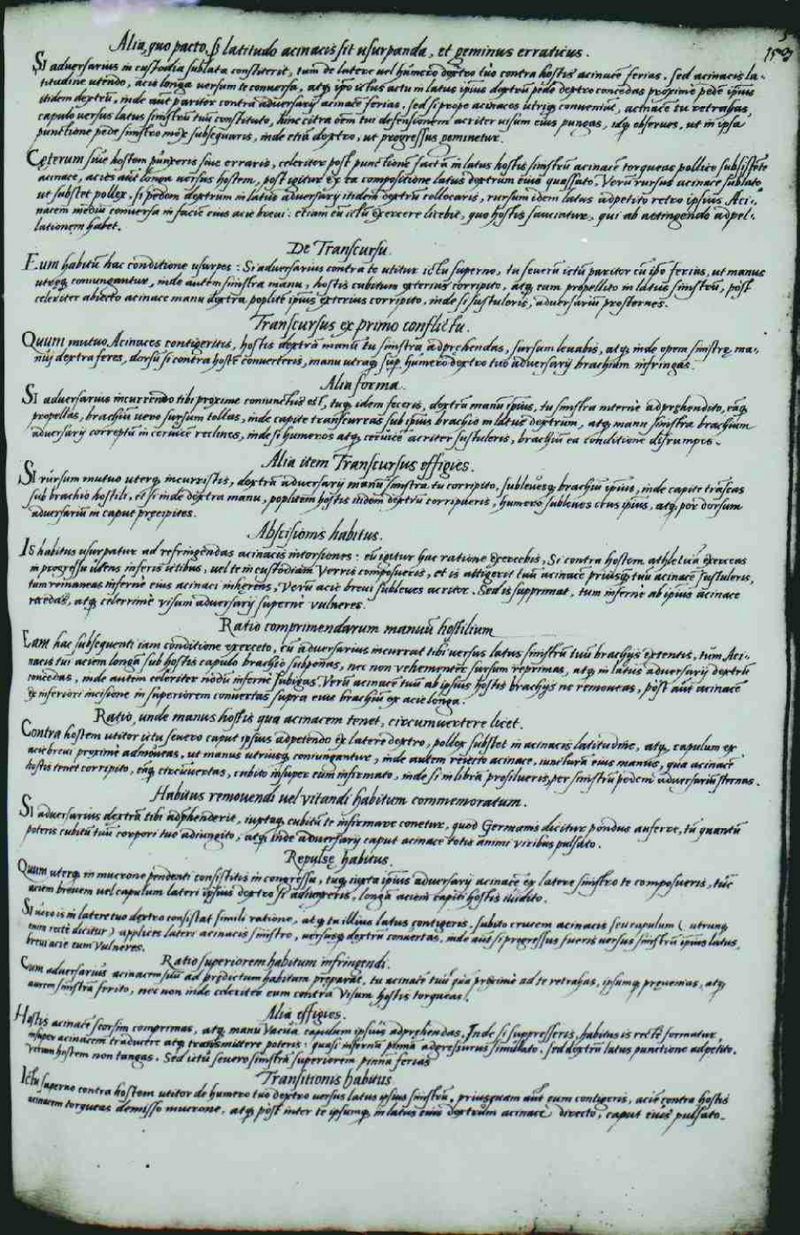 Alia, quo pacto, si latitudo acinacis sit usurpanda, et geminus erraticus.
SI adversarius in custodia sublata constiterit, tum de latere vel humero dextro tuo contra hostis acinacē ferias. sed acinacis la-
titudine utendo, acies longa versum te conversa, atq, ipso ictus actu in latus ipsius dextrū pede dextro concedas proxime pedē ipsius
itidem dextrū, inde aut pariter contra adversarij acinacē ferias. sed si prope acinaces utriq, convenint, acinacē tu retrahas,
capulo versus latus sinistrū tuū constituto, hinc citra om̄ tui defensionem acriter visum eius pungas, idq, observes, ut in ipsa
punctione pede sinistro mox subsequaris, inde etiā dextro, ut progressus geminetur.
Cęterum sive hostem punxeris sive erraris, celeriter post punctionē factā in latus hostis sinistrū acinacē torqueas pollice subsistēte
acinace, acies aūt longa versus hostem, post igitur ex ea compositione latus dextrum eius quassato. Verū rursus acinace sublato,
ut substet pollex, si pedem dextrum in latus adversarij itidem dextrū collocaris, rursum idem latus adpetito retro ipsius. Aci-
nacem mediū conversa in facie eius acie brevi. etiam eū ictū exercere licebit, quo hostis sauciatur, qui ab attingendo adpel-
lationem habet.
De Transcursu.
EUm habitū hac conditione usurpes: Si adversarius contra te utitur ictu superno, tu severū ictū pariter cū ipso ferias, ut manus
utręq, coniungantur, inde autem sinistra manu, hostis cubitum exterius corripito, atq, eam propellito in latus sinistrū, post
celeriter abiecto acinace manu dextra poplitē ipsius exterius corripito, inde si sustuleris, adversariū prosternes.
Transcursus ex primo conflictu.
QUum mutuo Acinaces contigeritis, hostis dextrā manū tu sinistra adprehendas, sursum levabis, atq, inde opem sinistrę ma-
nuj dextra feres, dorsū si contra hostē converteris, manu utraq, sup. humero dextro tuo adversarij brachium infringas.
Alia forma.
SI adversarius incurrendo tibi proxime coniunctus est, tuq, idem feceris, dextrā manū ipsius, tu sinistra internē adprehendito, eāq,
propellas, brachiū vero sursum tollas, inde capite transcurras sub ipsius brachio in latus dextrum, atq, manu sinistra brachium
adversarij correptū in cervice reclines, inde si humeros atq, cervicē acriter sustuleris, brachiū ea conditione disrumpis.
Alia item Transcursus effigies.
SI rursum mutuo uterq, incurristis, dextrā adversarij manū sinistra tu corripito, sublevesq, brachiū ipsius, inde capite trāseas
sub brachio hostili, et si inde dextra manu, poplitem hostis itidem dextrū corripueris, humero subleves crus ipsius, atq, per dorsum
adversariū in caput pręcipites.
Abscisionis habitus.
IS habitus usurpatur ad refringendas acinacis intorsiones: eū igitur hac ratione exercebis, Si contra hostem athletica exerceas
in progressu utens inferis ictibus, vel te in custodiam Verris composueris, et is attigerit tuū acinacē priusq, tuū acinacē sustuleris,
tum remaneas infernē eius acinaci inhęrens, Verū acie brevi subleves acriter. Sed is supprimat, tum infernē ab ipsius acinace
recedas, atq, celerrime visum adversarij superne vulneres.
Ratio comprimendarum manuū hostilium
EAm hac subsequenti iam conditione exerceto, cū adversarius incurrat tibi versus latus sinistrū tuū brachijs extentis, tum Aci-
nacis tui aciem longā sub hostis capulo brachio subponas, nec non vehementer sursum reprimas, atq, in latus adversarij dextrū
concedas, inde autem celeriter nodū infernē subigas. Verū acinacē tuū ab ipsius hostis brachijs ne removeas, post aūt acinacē
ex inferiori incisione in superiorem convertas supra eius brachiū ex acie longa.
Ratio, unde manus hostis qua acinacem tenet, circumvertere licet.
COntra hostem utitor ictu severo caput ipsius adpetendo ex latere dextro, pollex substet in acinacis latitudine, atq, capulum ex
acie brevi proximē admoveas, ut manus utriusq, coniungantur, inde autem reiecto acinace, iuncturā eius manus, qua acinacē
hostis tenet corripito, eāq, circūvertas, cubito insuper eum infirmato, inde si in librā prosilueris, per sinistrū pedem adversariū sternas.
Habitus removendi vel vitandi habitum commemoratum.
SI adversarius dextrā tibi adprehenderit, iuxtaq, cubitū te infirmare conetur, quod Germanis dicitur pondus auferre, tū quantū
poteris cubitū tuū corpori tuo adiungito, atq, inde adversarij caput acinace totis animi viribus pulsato.
Repulsę habitus.
QUum uterq, in mucrone pendenti consistitis in congressu, tuq, iuxta ipsius adversarij acinacē ex latere sinistro te composueris, tūc
aciem brevem vel capulum lateri ipsius dextro si adiunxeris, longā aciem capiti hostis incidito.
SI vero is in latere tuo dextro consistat simili ratione, atq, tu illius latus contigeris. subito crucem acinacis seu capulum (utrumq,
enim rectē dicitur) applices lateri acinacis sinistro, versusq, dextrū convertas, inde aūt si progressus fueris versus sinistrū ipsius latus,
brevi acie eum Vulneres.
Ratio superiorem habitum infringendi.
CUm adversarius acinacem suū ad prędictum habitum pręparat, tu acinacē tuū quā proximē ad te retrahas, ipsumq, pręvenias, atq,
aurem sinistrā ferito, nec non inde celeriter eum contra Visum hostis torqueas.
Alia effigies.
HOstis acinacē seorsim comprimas, atq, manu vacua capulum ipsius adprehendas. Inde si suppresseris, habitus is rectē formatur,
insuper acinacem traducere atq, transmittere poteris: quasi infernā pinnā adgressurus similato. sed dextrū latus punctione adpetito.
Verum hostem non tangas. Sed ictu severo sinistrā superiorem pinnā ferias
Transitionis habitus.
ICtu superno contra hostem utitor de humero tuo dextro versus latus ipsius sinistrū, priusquam aūt eum contigeris, aciē contra hostis
acinacem torqueas demisso mucrone, atq, post inter te ipsumq, in latus eius dextrum acinace directo, caput eius pulsato.